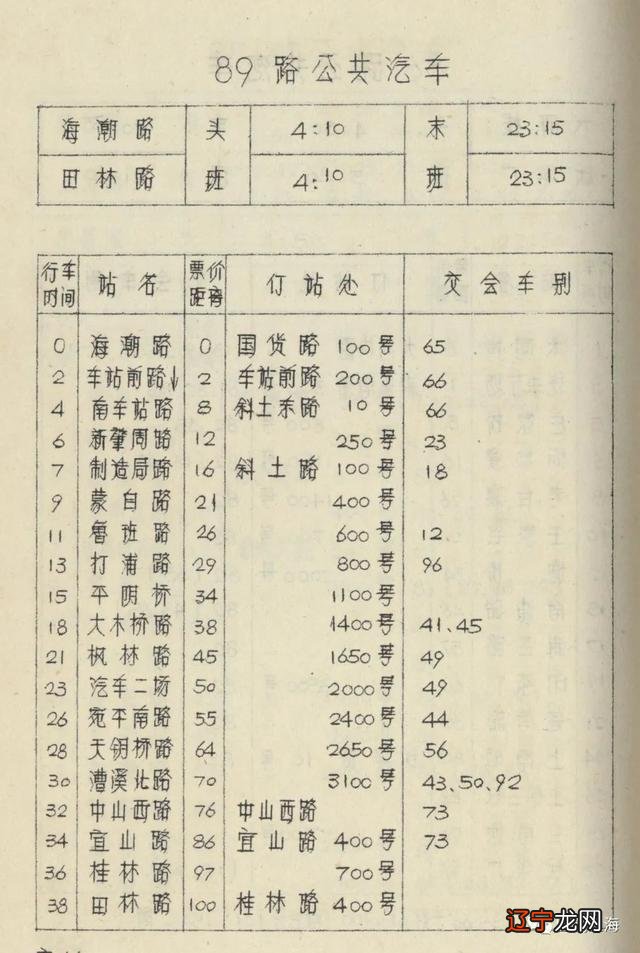 89路公共汽车
海潮路 头 4:10 末 23:15
田林路 班 4:10 班 23:15
行车时间 站名 票价距离 仃站处 交会车别
0 海潮路 0 国货路 100号 65
2 车站前路↓ 2 车站前路 200号 66
4 南车站路 8 斜土东路 10号 66
6 新肇周路 12 250号 23
7 制造局路 16 斜土路 100号 18
9 蒙自路 21 400号
11 鲁班路 26 600号 12
13 打浦路 29 800号 96
15 平阴桥 34 1100号
18 大木桥路 38 1400号 41、45
21 枫林路 45 1650号 49
23 汽车二场 50 2000号 49
26 宛平南路 55 2400号 44
28 天钥桥路 64 2650号 56
30 漕溪北路 70 3100号 43、50、92
32 中山西路 76 中山西路 73
34 宜山路 86 宜山路 400号 73
36 桂林路 97 700号
38 田林路 100 桂林路 400号
辽宁龙网
海